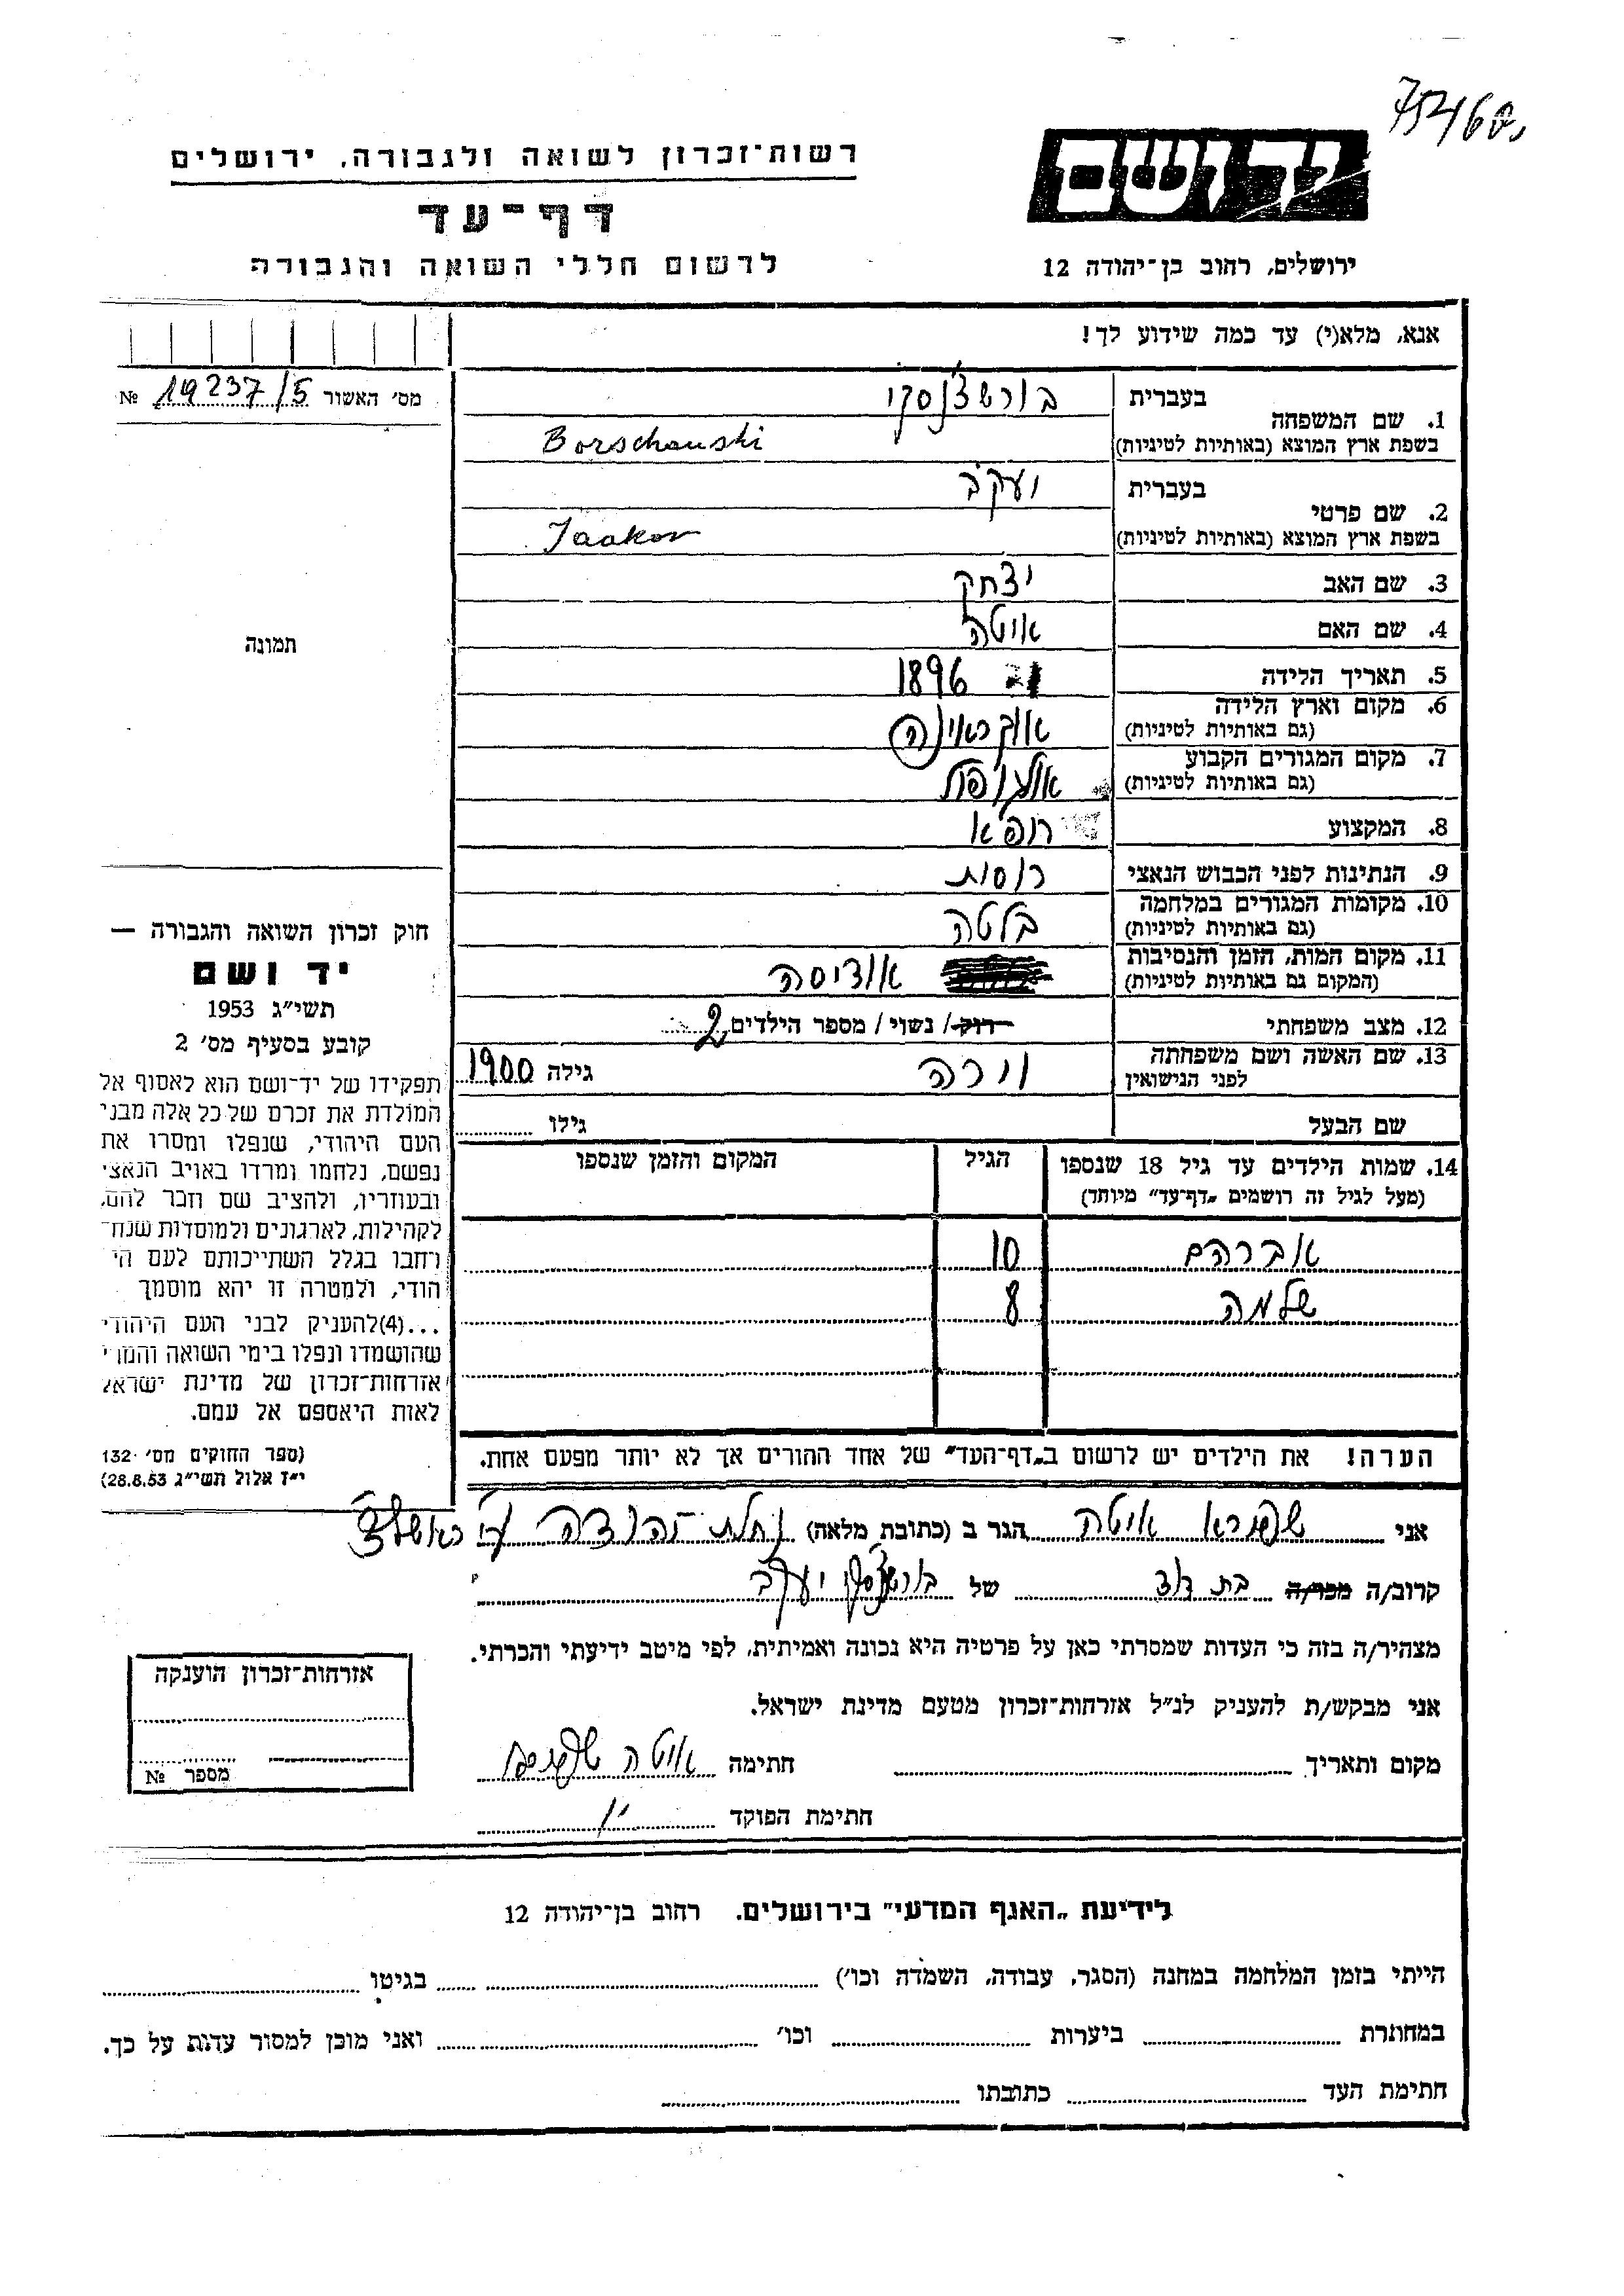 75460
יד ושם
רשות־זכרון לשואה ולגבורה, ירושלים
דף־עד
לרשום חללי השואה והגבורה
ירושלים, רחוב בן־יהודה 12
אנא, מלא(י) עד כמה שידוע לך!
מס׳ האשור № 19237/5
1. שם המשפחה
בעברית בורשצ'נסקי
בשפת ארץ המוצא (באותיות לטיניות) Borschanski
2. שם פרטי
בעברית יעקב
בשפת ארץ המוצא (באותיות לטיניות) Jaakov
3. שם האב יצחק
4. שם האם איטה
5. תאריך הלידה 1896
6. מקום וארץ הלידה
(גם באותיות לטיניות) אוקראינה
7. מקום המגורים הקבוע
(גם באותיות לטיניות)
8. המקצוע רופא
9. הנתינות לפני הכבוש הנאצי רוסית
10. מקומות המגורים במלחמה
(גם באותיות לטיניות) בלטה
11. מקום המות, הזמן והנסיבות
(המקום גם באותיות לטיניות) אודיסה
12. מצב משפחתי רוק/ נשוי/ מספר הילדים 2
13. שם האשה ושם משפחתה
לפני הנישואין וורה גילה 1900
שם הבעל גילו
14. שמות הילדים עד גיל 18 שנספו הגיל המקום והזמן שנספו
(מעל לגיל זה רושמים „דף־עד״ מיוחד)
אברהם 10
שלמה 8
הערה! את הילדים יש לרשום ב„דף־העד״ של אחד ההורים אך לא יותר מפעם אחת.
תמונה
חוק זכרון השואה והגבורה —
יד ושם
תשי״ג 1953
קובע בסעיף מס׳ 2
תפקידו של יד־ושם הוא לאסוף אל
המולדת את זכרם של כל אלה מבני
העם היהודי, שנפלו ומסרו את
נפשם, נלחמו ומרדו באויב הנאצי
ובעוזריו, ולהציב שם וזכר להם,
לקהילות, לארגונים ולמוסדות שנח־
רחבו בגלל השתייכותם לעם הי
הודי, ולמטרה זו יהא מוסמך
...(4)להעניק לבני העם היהודי
שהושמדו ונפלו בימי השואה והמרי
אזרחות־זכרון של מדינת ישראל
לאות היאספם אל עמם.
(ספר החוקים מס׳ 132·
י״ז אלול תשי״ג 28.8.53)
אני שפירא איטה הגר ב (כתובת מלאה) נחלת יהודה ע"י ראשל"צ
קרוב/ה מכר/ה בת דוד של בורשצ'נסקי יעקב
מצהיר/ה בזה כי העדות שמסרתי כאן על פרטיה היא נכונה ואמיתית, לפי מיטב ידיעתי והכרתי.
אני מבקש/ת להעניק לנ״ל אזרחות־זכרון מטעם מדינת ישראל.
מקום ותאריך חתימה איטה שפירא
חתימת הפוקד
אזרחות־זכרון הוענקה
מספר №
לידיעת „האגף המדעי״ בירושלים. רחוב בן־יהודה 12
הייתי בזמן המלחמה במחנה (הסגר, עבודה, השמדה וכו׳) בגיטו
במחתרת ביערות וכו׳ ואני מוכן למסור עדות על כך.
חתימת העד כתובתו